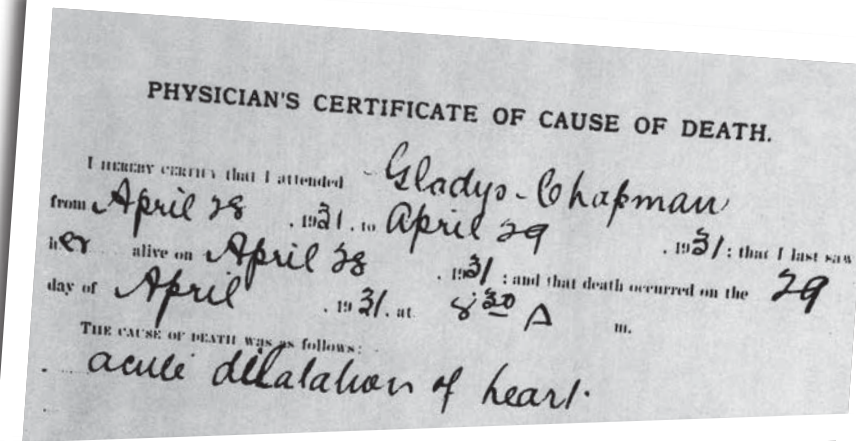 PHYSICIAN'S CERTIFICATE OF CAUSE OF DEATH.
I HEREBY CERTIFY that I attended Gladys Chapman
from April 28, 1931, to April 29, 1931; that I last saw
her alive on April 28, 1931; and that death occurred on the 29
day of April, 1931, at 8 30 A m.
THE CAUSE OF DEATH was as follows:
acute dilatation of heart.